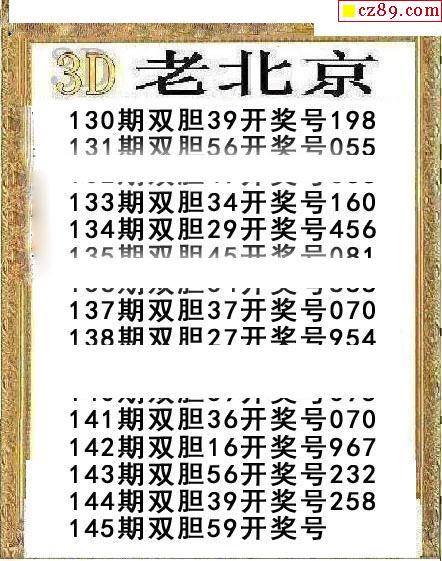 cz89.com
3D 老北京
130期双胆39开奖号198
131期双胆56开奖号055
133期双胆34开奖号160
134期双胆29开奖号456
135期双胆45开奖号081
137期双胆37开奖号070
138期双胆27开奖号954
141期双胆36开奖号070
142期双胆16开奖号967
143期双胆56开奖号232
144期双胆39开奖号258
145期双胆59开奖号